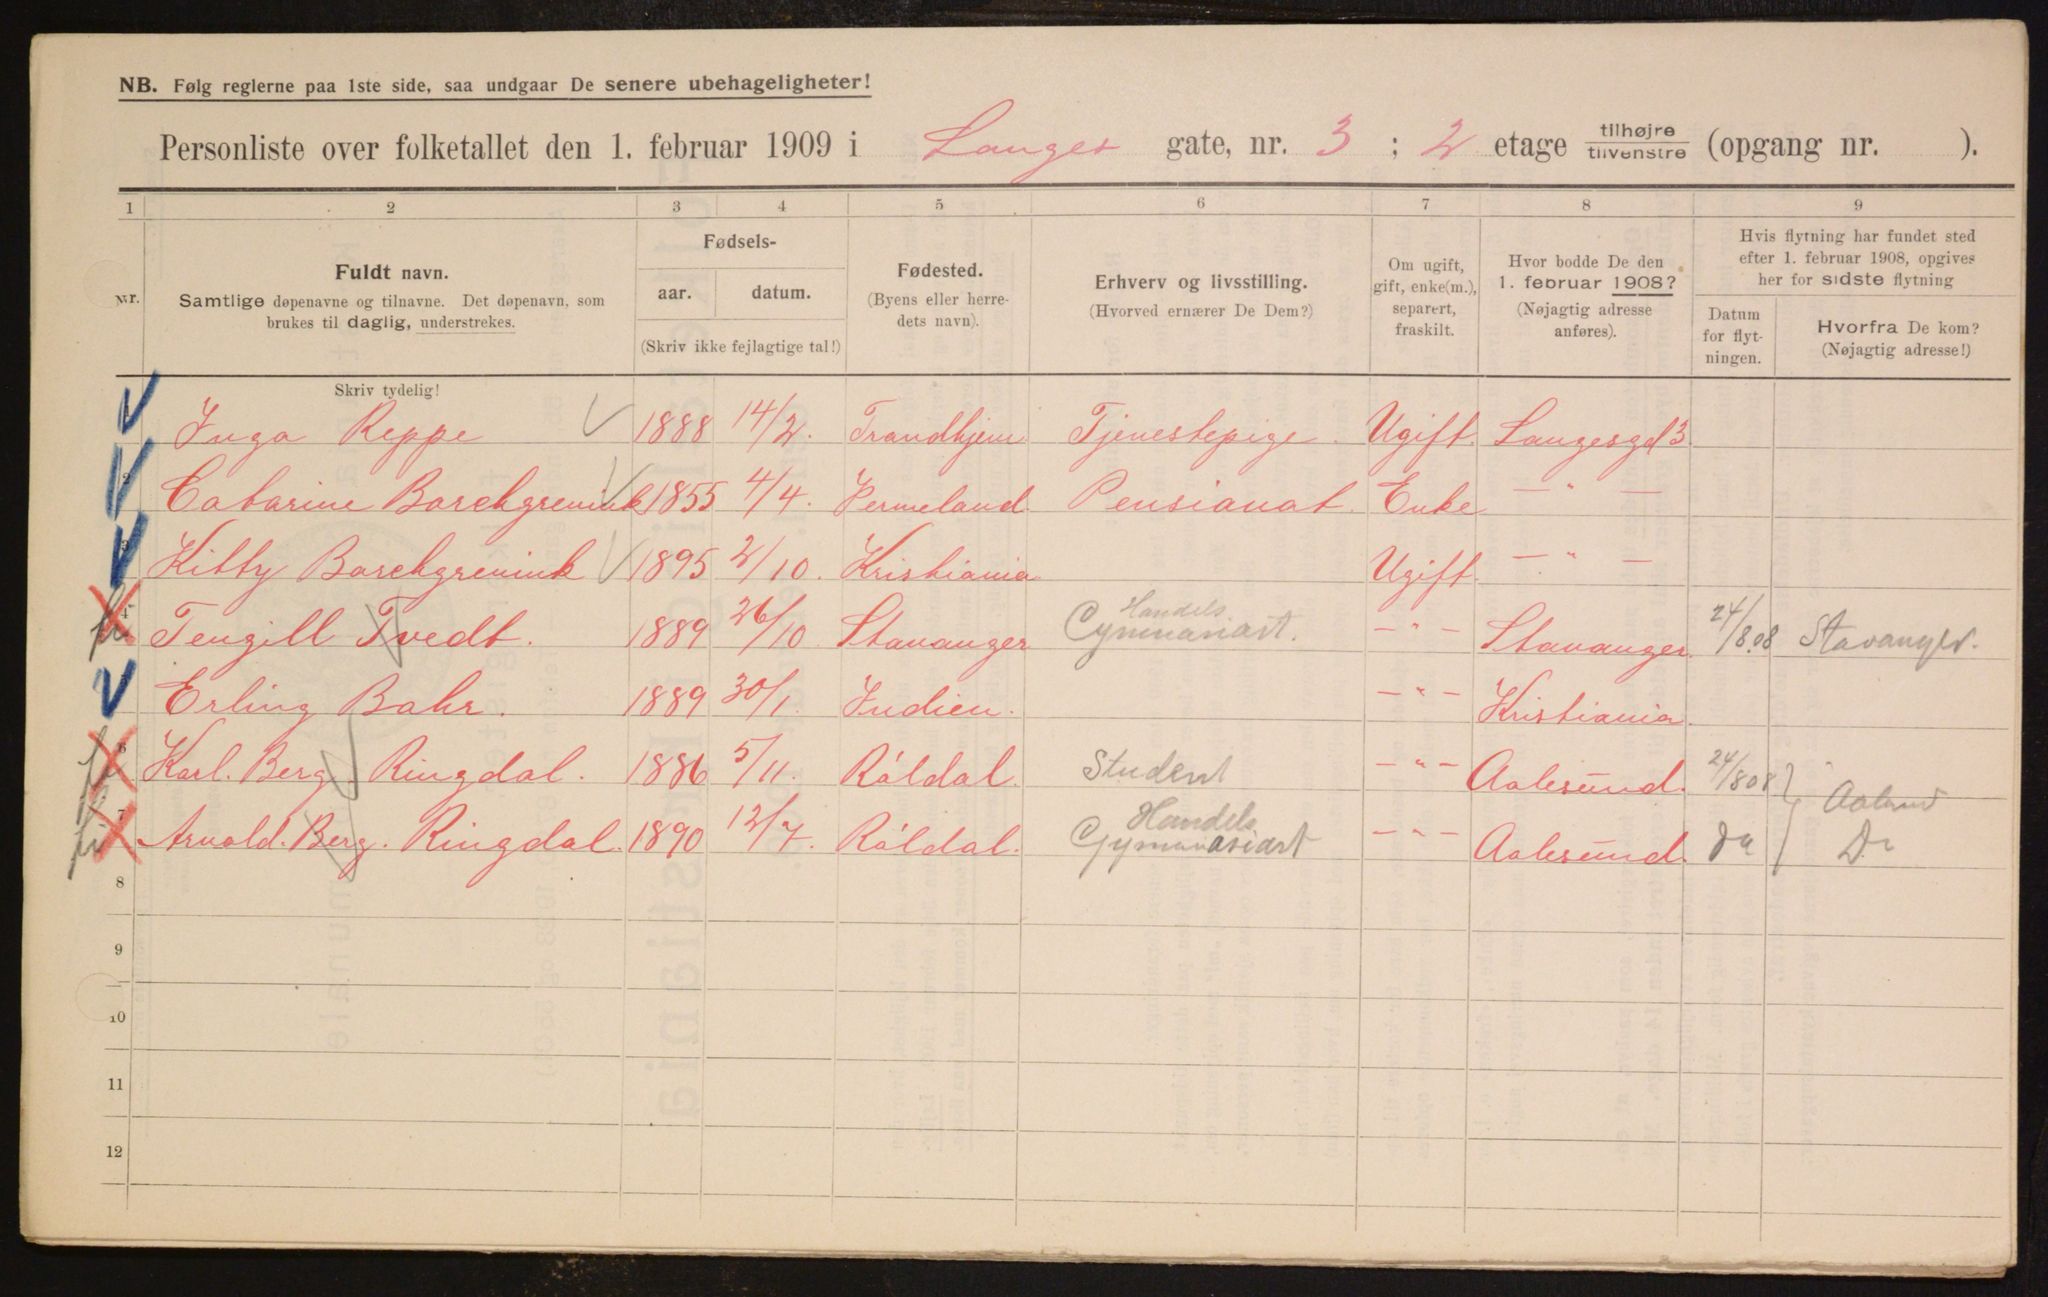 NB. Følg reglerne paa 1ste side, saa undgaar De senere ubehageligheter!
Personliste over folketallet den 1. februar 1909 i Langes gate, nr. 3 ; 2 etage tilhøjre tilvenstre (opgang nr. ).
1 2 3 4 5 6 7 8 9
Nr.
Fuldt navn.
Samtlige døpenavne og tilnavne. Det døpenavn, som
brukes til daglig, understrekes.
Skriv tydelig!
Fødsels-
aar. datum.
(Skriv ikke fejlagtige tal!)
Fødested.
(Byens eller herre-
dets navn).
Erhverv og livsstilling.
(Hvorved ernærer De Dem?)
Om ugift,
gift, enke(m.),
separert,
fraskilt.
Hvor bodde De den
1. februar 1908?
(Nøjagtig adresse
anføres).
Hvis flytning har fundet sted
efter 1. februar 1908, opgives
her for sidste flytning
Datum
for flyt-
ningen.
Hvorfra De kom?
(Nøjagtig adresse!)
Inga Reppe 1888 14/2. Trondhjem Tjenestepige. Ugift. Langesgd 3
2 Catarine Borchgrevink 1855 4/4. Vermeland. Pensionat. Enke — " —
3 Kitty Borchgrevink 1895 2/10. Kristiania Ugift. — " —
4 Tengill Tvedt. 1889 26/10 Stavanger Handels Gymnasiast. — " — Stavanger. 24/8.08 Stavanger.
Erling Bahr. 1889 30/1. Indien. — " — Kristiania.
6 Karl. Berg. Ringdal. 1886 5/11. Róldal. Student — " — Aalesund. 24/8 08
7 Arnold. Berg. Ringdal. 1890 12/7. Róldal. Handels Gymnasiast — " — Aalesund. Do
8
9
10
11
12